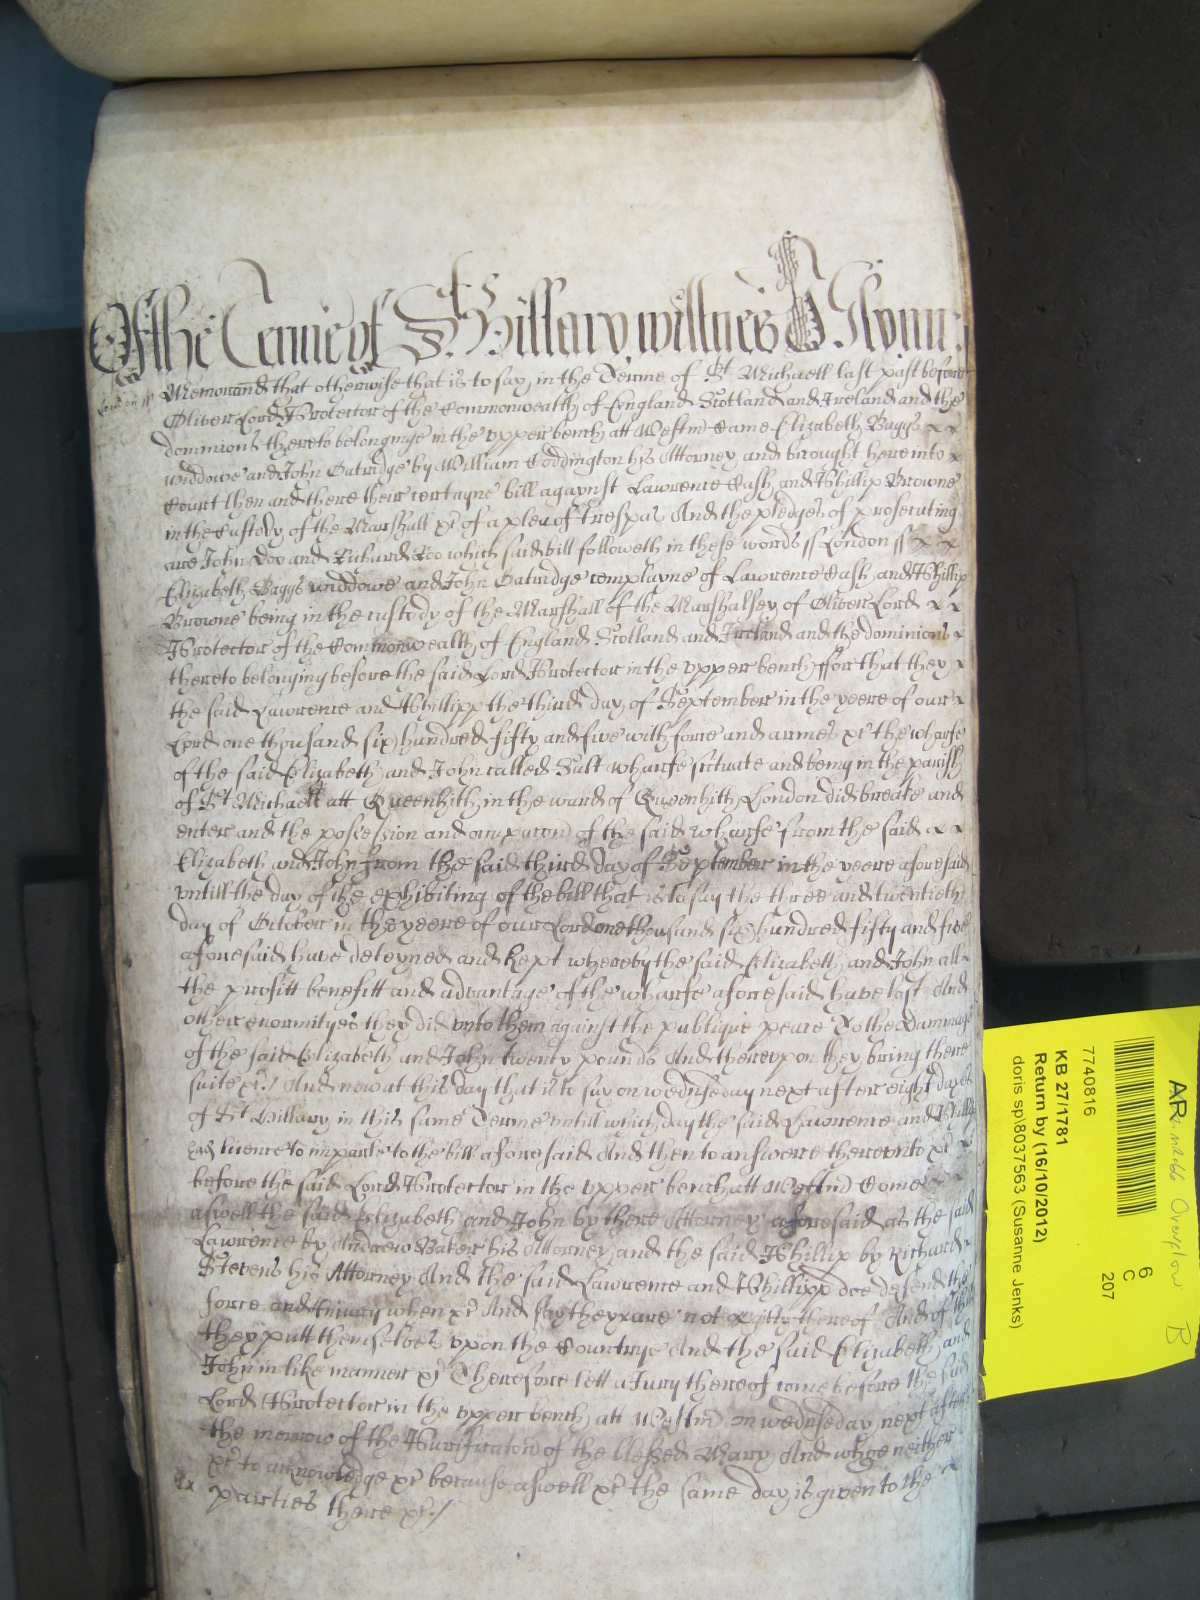 Of the Terme of St Hillary wittnes J Glynn
London ss
Memorand that otherwise that is to say in the Terme of St Michaell last past before
Oliver Lord Protector of the Commonwealth of England Scotland and Ireland and the
dominions thereto belonginge in the vpper bench att Westm Came Elizabeth Baggs x x
widdowe and John Gatridge by William Coddington his Attorney and brought here into x
Court then and there their certayne bill agaynst Lawrence Cash and Phillip Browne
in the Custody of the Marshall xc of a plea of trespas And the pledges of prosecuting
are John Doo and Richard Roo which said bill followeth in these words ss London ss x x
Elizabeth Baggs widdowe and John Gatridge complayne of Lawrence Cash and Phillip
Browne being in the custody of the Marshall of the Marshalsey of Oliver Lord x x
Protector of the Commonwealth of England Scotland and Ireland and the dominions x
thereto belonging before the said Lord Protector in the vpper bench ffor that they x
the said Lawrence and Phillipp the third day of September in the yeere of our x
Lord one thousand six hundred fifty and five with force and armes xc the wharfe
of the said Elizabeth and John called Salt wharfe scituate and being in the parish
of St Michaell att Queenhith in the ward of Queenhith London did breake and
enter and the possession and occupacon of the said wharfe from the said x x
Elizabeth and John from the said third day of September in the yeere aforesaid
vntill the day of the exhibiting of the bill that is to say the three and twentieth
day of October in the yeere of our Lord one thousand six hundred fifty and five
aforesaid have deteyned and kept whereby the said Elizabeth and John all
the profitt benefitt and advantage of the wharfe aforesaid have lost And
other enormityes they did vnto them against the publique peace To the dammage
of the said Elizabeth and John twenty pounds And therevpon they bring there
suite xc / And now at this day that is to say on wednseday next after eight dayes
of St Hillary in this same Terme vntill which day the said Lawrence and Phillip
had licence to imparle to the bill aforesaid And then to answere therevnto xc x
before the said Lord Protector in the vpper bench att Westm Come x x
aswell the said Elizabeth and John by there Attorney aforesaid as the said
Lawrence by Andrew Baker his Attorney and the said Phillip by Richard x
Stevens his Attorney And the said Lawrence and Phillipp doe defend the
force and Iniury when xc And say they are not guilty thereof And of this
they putt themselves vpon the Countrye And the said Elizabeth and
John in like manner xc Therefore lett a Jury thereof come before the said
Lord Protector in the vpper bench att Westm on wednseday next after
the morrow of the Purificaton of the blessed Mary And whoe neither
xc to acknowledge xc because aswell xc the same day is given to the x
parties there xc /
7740816
KB 27/1781
Return by (16/10/2012)
doris sp\8037563 (Susanne Jenks)
6
C
207
Overflow
B